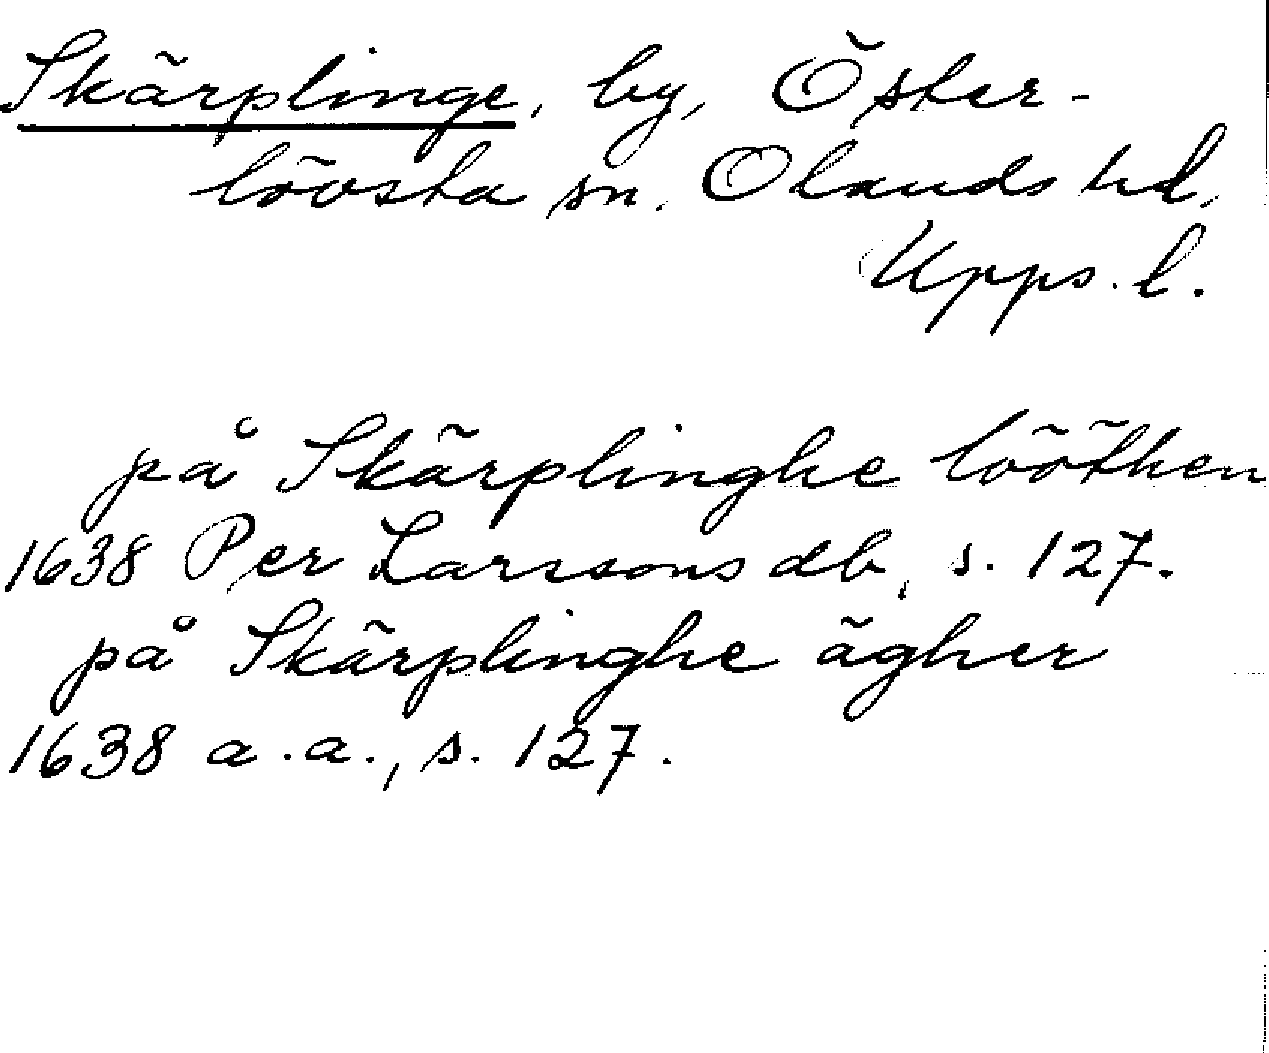 Skärplinge, by, Öster-
lövsta sn. Olands hd,
Upps. l.
på Skärplinghe lööthen
1638 Per Larssons db, s. 127.
på Skärplinghe ägher
1638 a.a., s. 127.